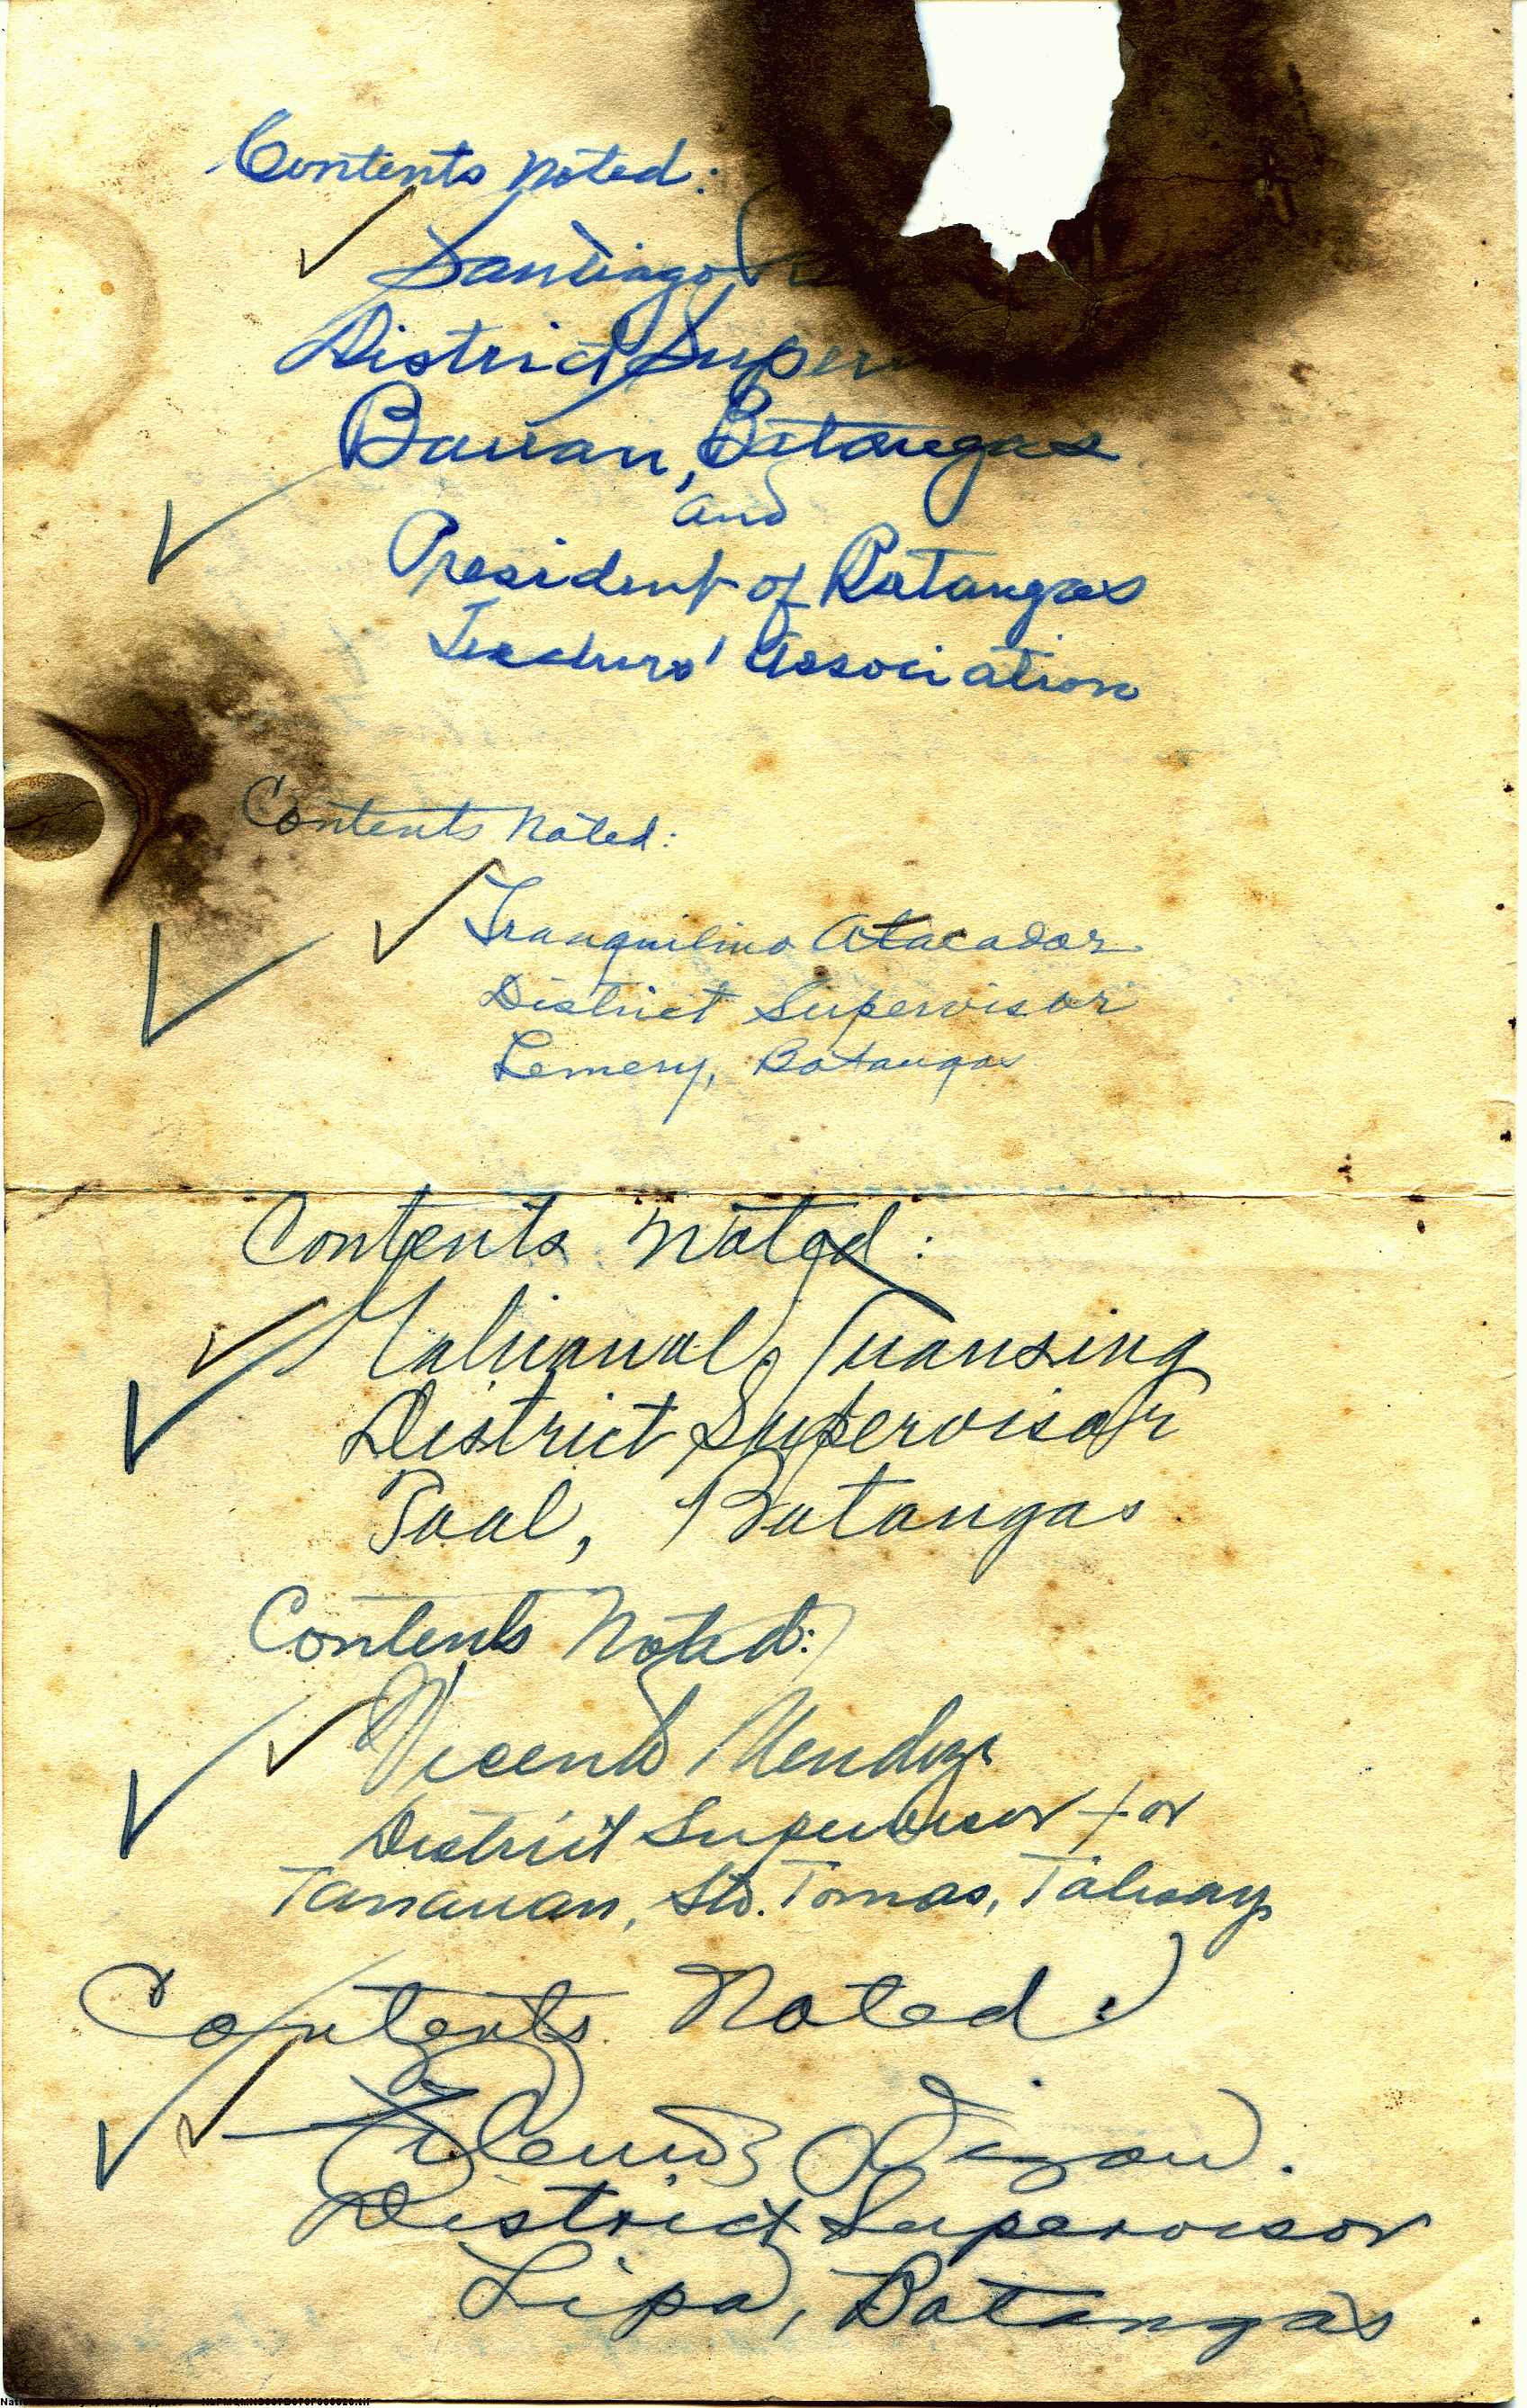 Contents Noted:
Santiago
District Super
Bauan, Batangas
and
President of Batangas
Teachers' Association
Contents Noted:
Tranquilino Atacador
District Supervisor
Lemery, Batangas
Contents Noted:
Tuansing
District Supervisor
Taal, Batangas
Contents Noted:
Vicente Mendoza
District Supervisor for
Tanauan, Sto. Tomas, Talisay
Contents Noted:
Dizon.
District Supervisor
Lipa, Batangas